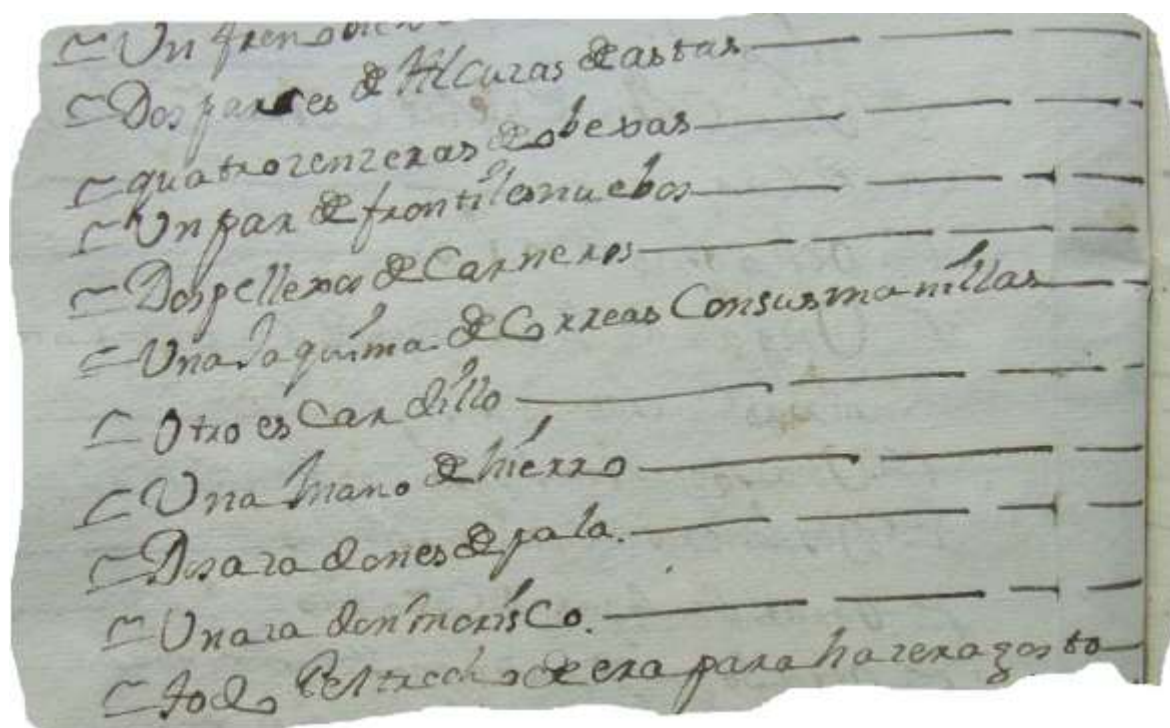 Un freno
Dos pares de Alcuzas de astas
quatro zenzerras de obexas
Un par de frontiles nuebos
Dos pellexos de Carneros
Una Jaquima de Correas Con sus manillas
Otro escardillo
Una mano de hierro
Dos azadones de pala.
Un azadon morisco.
todo Peltrecho de era para hazer agosto